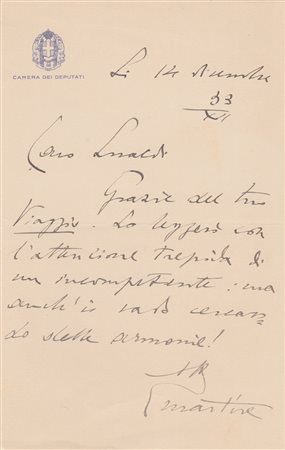 CAMERA DEI DEPUTATI
Li 14 dicembre
33
XII
Caro Lualdi
Grazie del tuo
Viaggio. Lo leggerò con
l'attenzione trepida di
un incompetente: ma
anch'io vado cercan-
do stelle armonie!
Martire